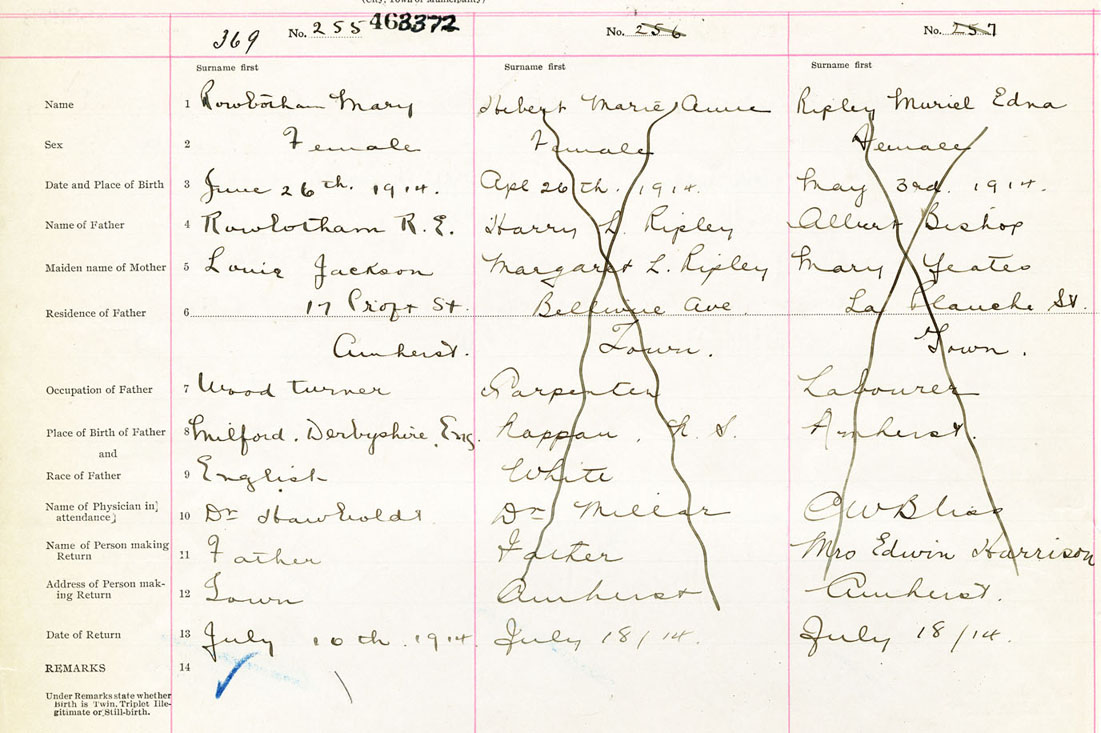 (City, Town or Municipality)
369 No. 255 463372 No. 256 No. 257
Surname first Surname first Surname first
Name 1 Rowbotham Mary Hebert Marie Anne Ripley Muriel Edna
Sex 2 Female Female Female
Date and Place of Birth 3 June 26th. 1914. Apl 26th. 1914. May 3rd. 1914.
Name of Father 4 Rowbotham R.E. Harry L. Ripley Albert Bishop
Maiden name of Mother 5 Louie Jackson Margaret L. Ripley Mary Yeates
Residence of Father 6 17 St. Ave. La Planche St.
Amherst. Town. Town.
Occupation of Father 7 Wood turner Carpenter Labourer
Place of Birth of Father 8 Milford. Derbyshire. Eng. Nappan. N. S. Amherst.
and
Race of Father 9 English White
Name of Physician in 10 Dr Dr Millar C W Bliss
attendance}
Name of Person making 11 Father Father Mrs Edwin Harrison
Return
Address of Person mak- 12 Town Amherst Amherst.
ing Return
Date of Return 13 July 10th. 1914 July 18/14. July 18/14.
REMARKS 14
Under Remarks state whether
Birth is Twin, Triplet Ille-
gitimate or Still-birth.